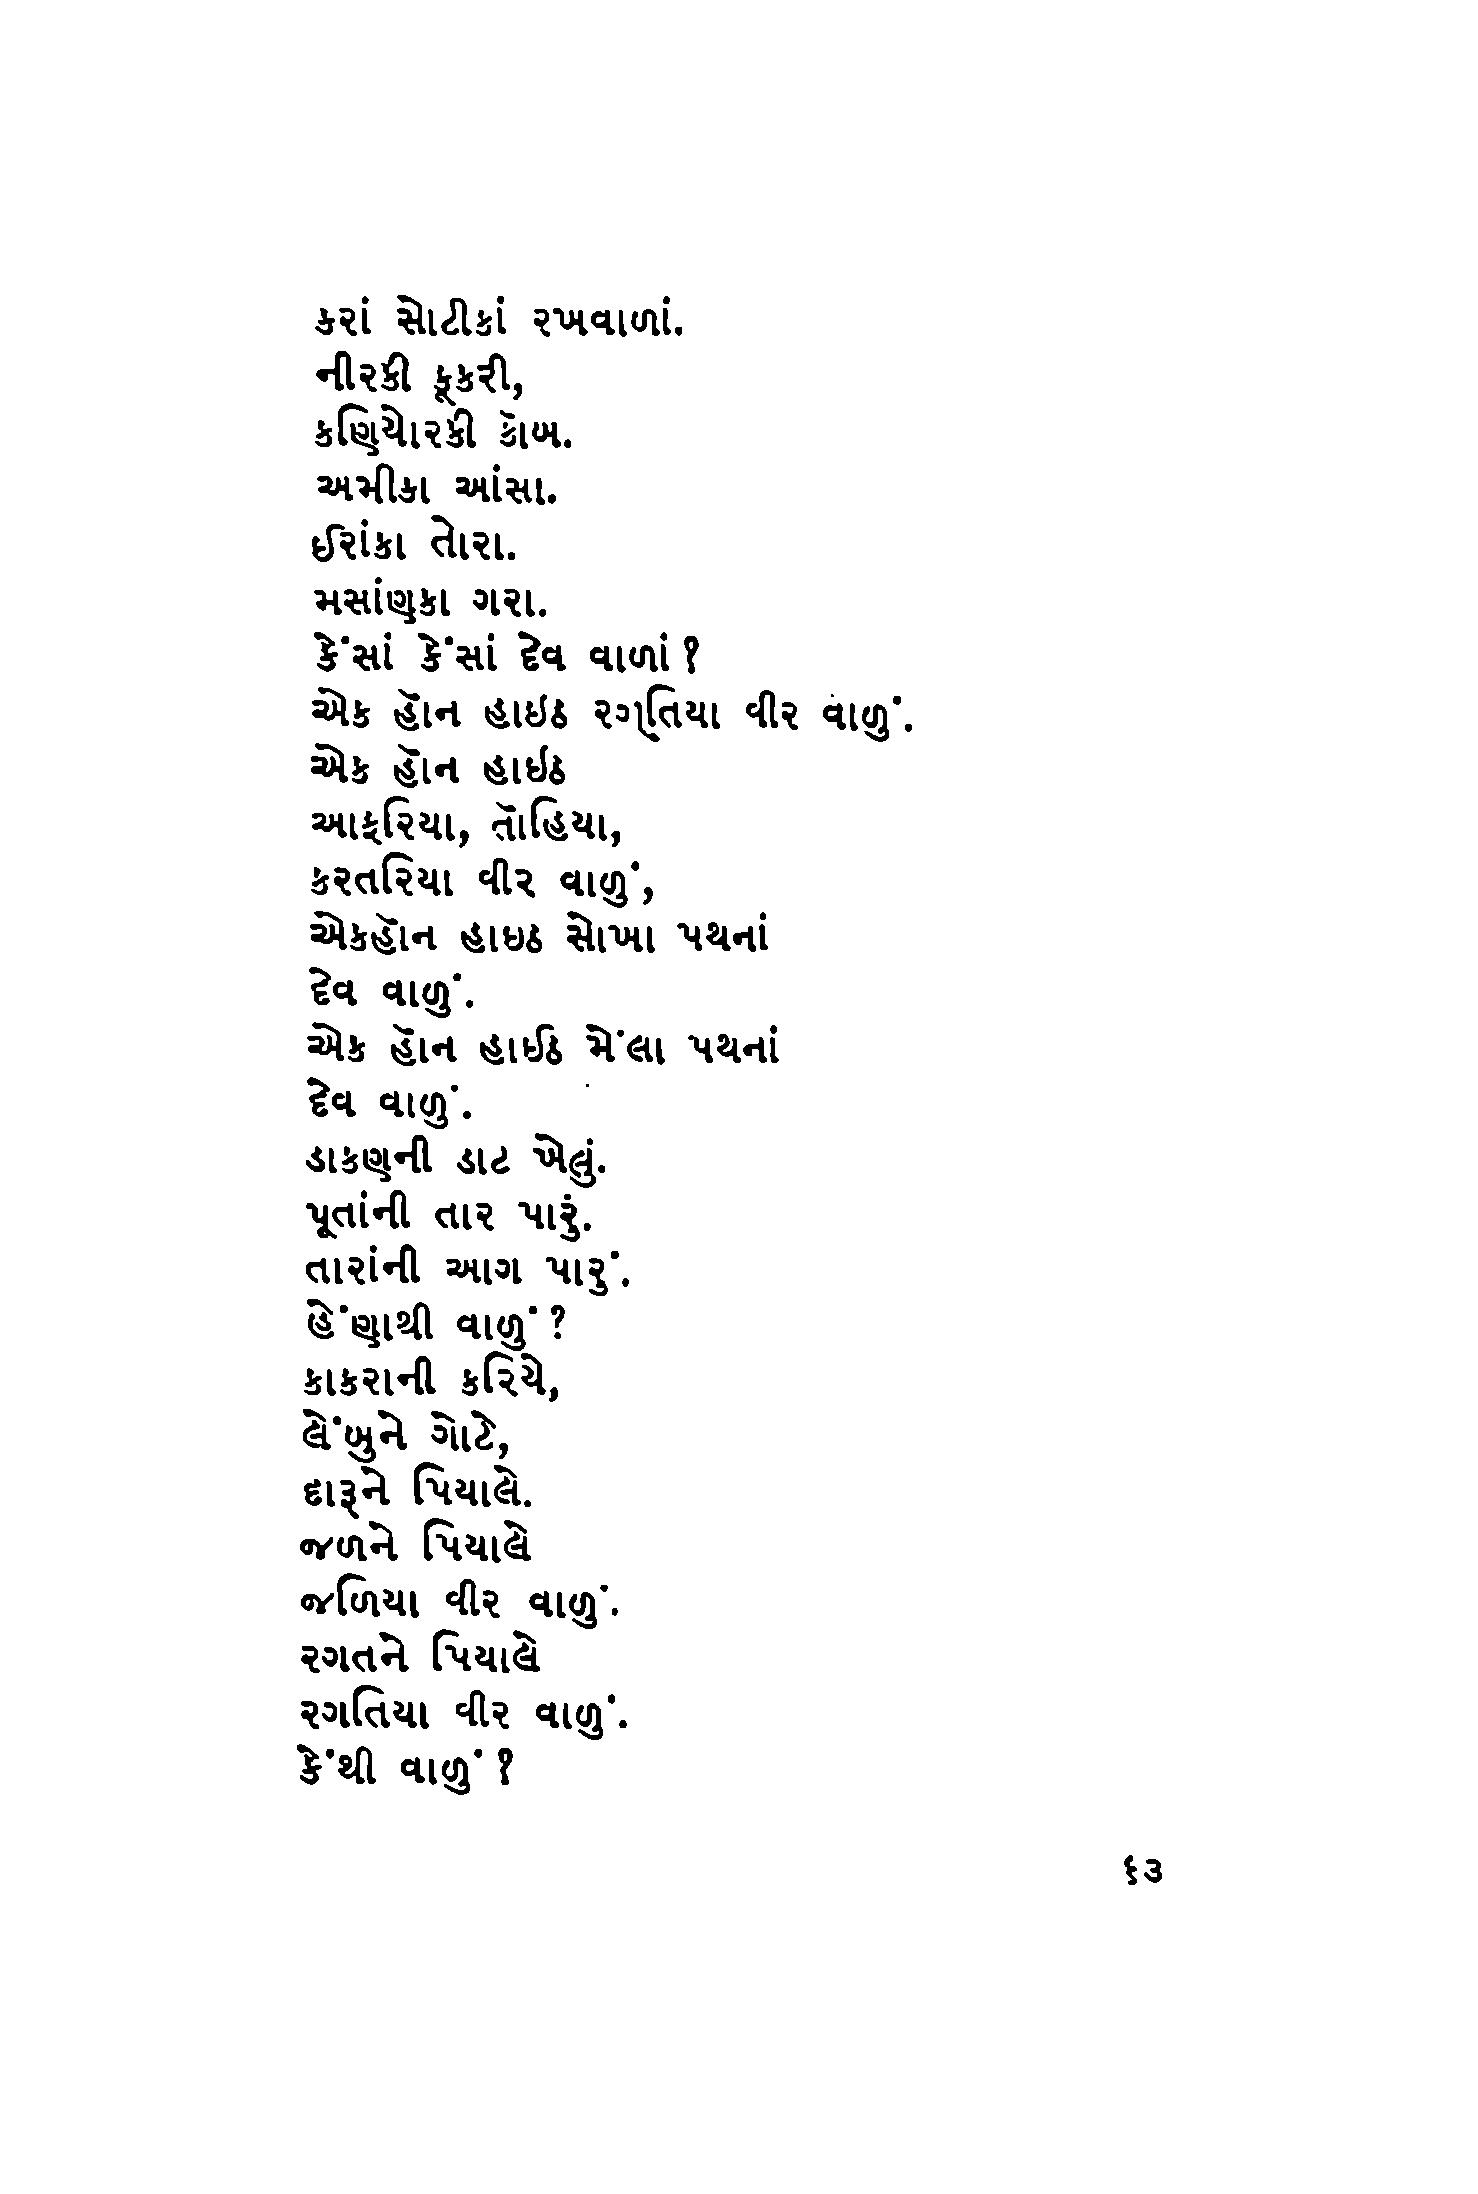 કરાં સોટીકાં રખવાળાં.
નીરકી કૂકરી,
કણિયોરકી કૉબ.
અમીકા આંસા.
ઈરાંકા તોરા.
મસાંણકા ગરા.
કેંસાં કેંસાં દેવ વાળાં ?
એક હૉન હાઇઠ રગ્તિયા વીર વાળું.
એક હૉન હાઇઠ
આફરિયા, તૉહિયા,
કરતરિયા વીર વાળું,
એકહૉન હાઇઠ સોખા પથનાં
દેવ વાળું.
એક હૉન હાઈઠ મેંલા પથનાં
દેવ વાળું.
ડાકણની ડાટ ખેલું.
પૂતાંની તાર પારું.
તારાંની આગ પારું.
હેંણાથી વાળું ?
કાકરાની કરિયે,
લેંબુને ગોટે,
દારૂને પિયાલે.
જળને પિયાલે
જળિયા વીર વાળું.
રગતને પિયાલે
રગતિયા વીર વાળું.
કેંથી વાળું ?
૬૩